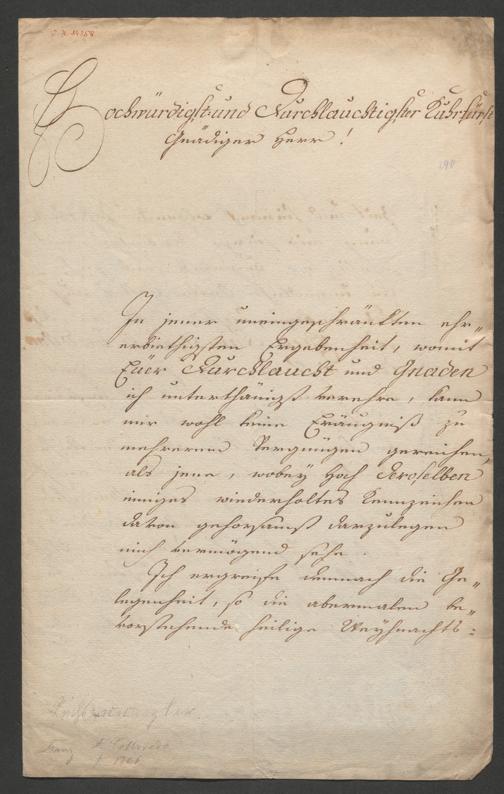 Hochwürdigst und Durchlauchtigster Kuhrfürst
Gnädiger Herr !
In jener uneingeschränkten ehr„
erbiethigsten Ergebenheit, womit
Euer Durchlaucht und Gnaden
ich unterthänigst verehre, kann
mir wohl keine Eräugniß zu
mehrerem Vergnügen gereichen,
als jene, wobey Hoch Deroselben
inniges wiederholtes Kennzeichen
davon gehorsamst darzulegen
mich vermögend sehe.
Ich ergreiffe demnach die Ge„
legenheit, so die abermalen be„
vorstehende heilige Weyhnachts-
Franz
Colloredo